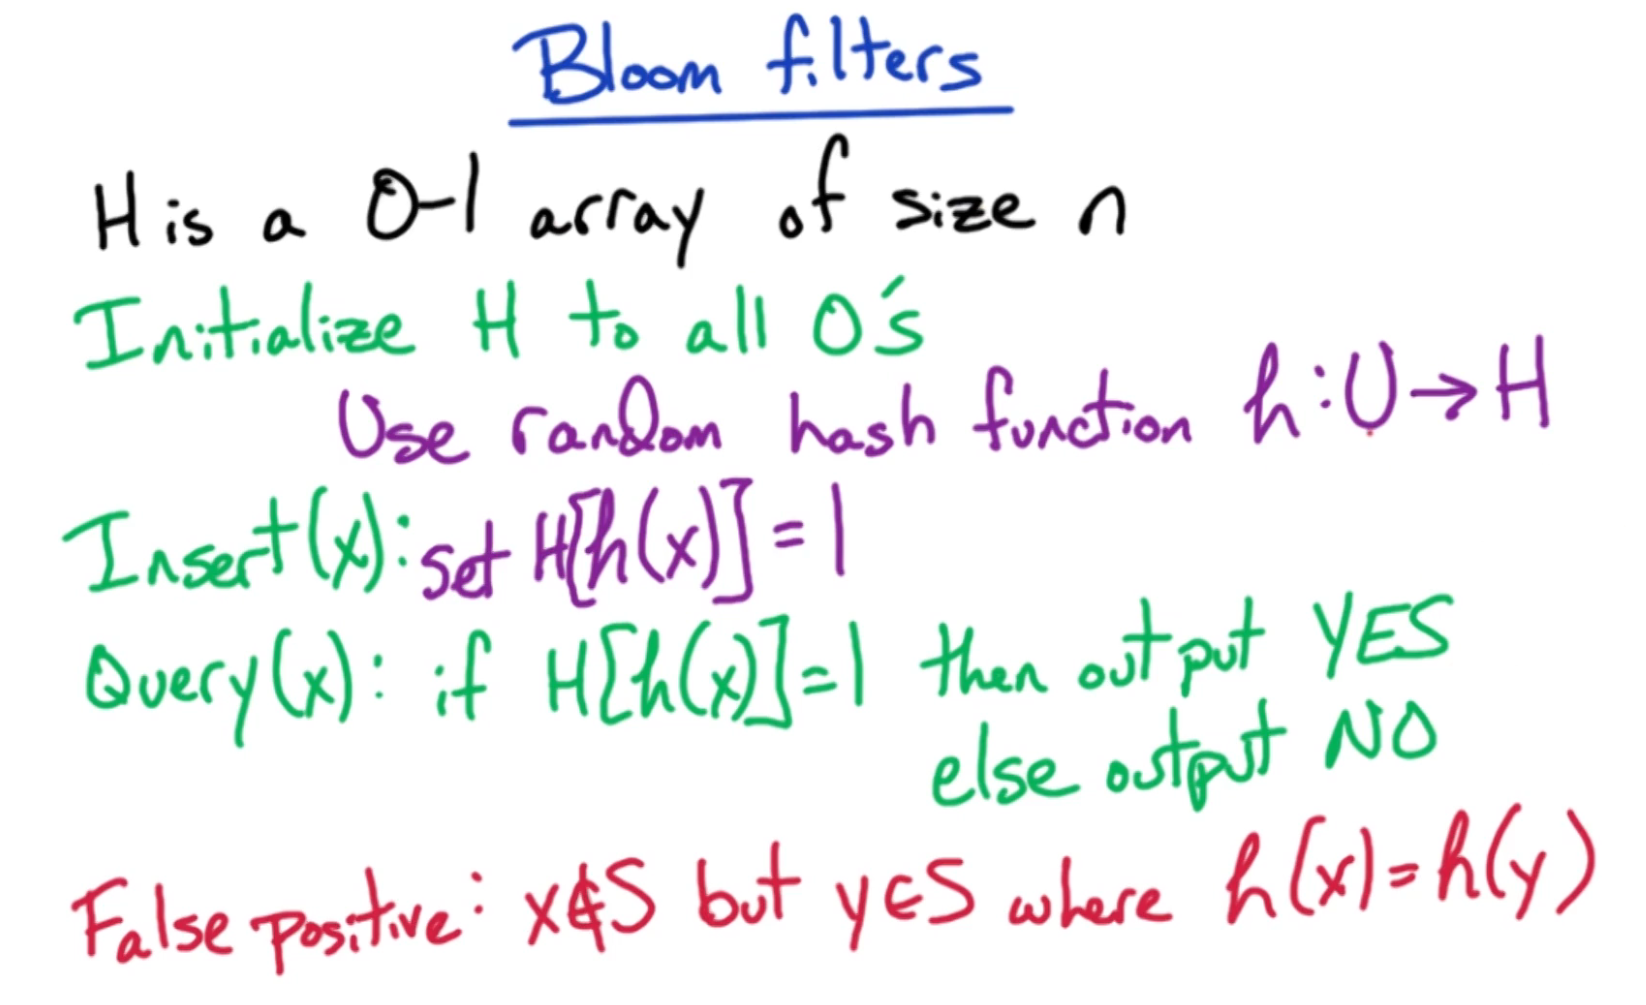 Bloom filters
H is a 0-1 array of size n
Initialize H to all 0's
Use random hash function h: U → H
Insert(x): set H[h(x)] = 1
Query(x): if H[h(x)] = 1 then output YES
else output NO
False positive: x∉S but y∈S where h(x) = h(y)